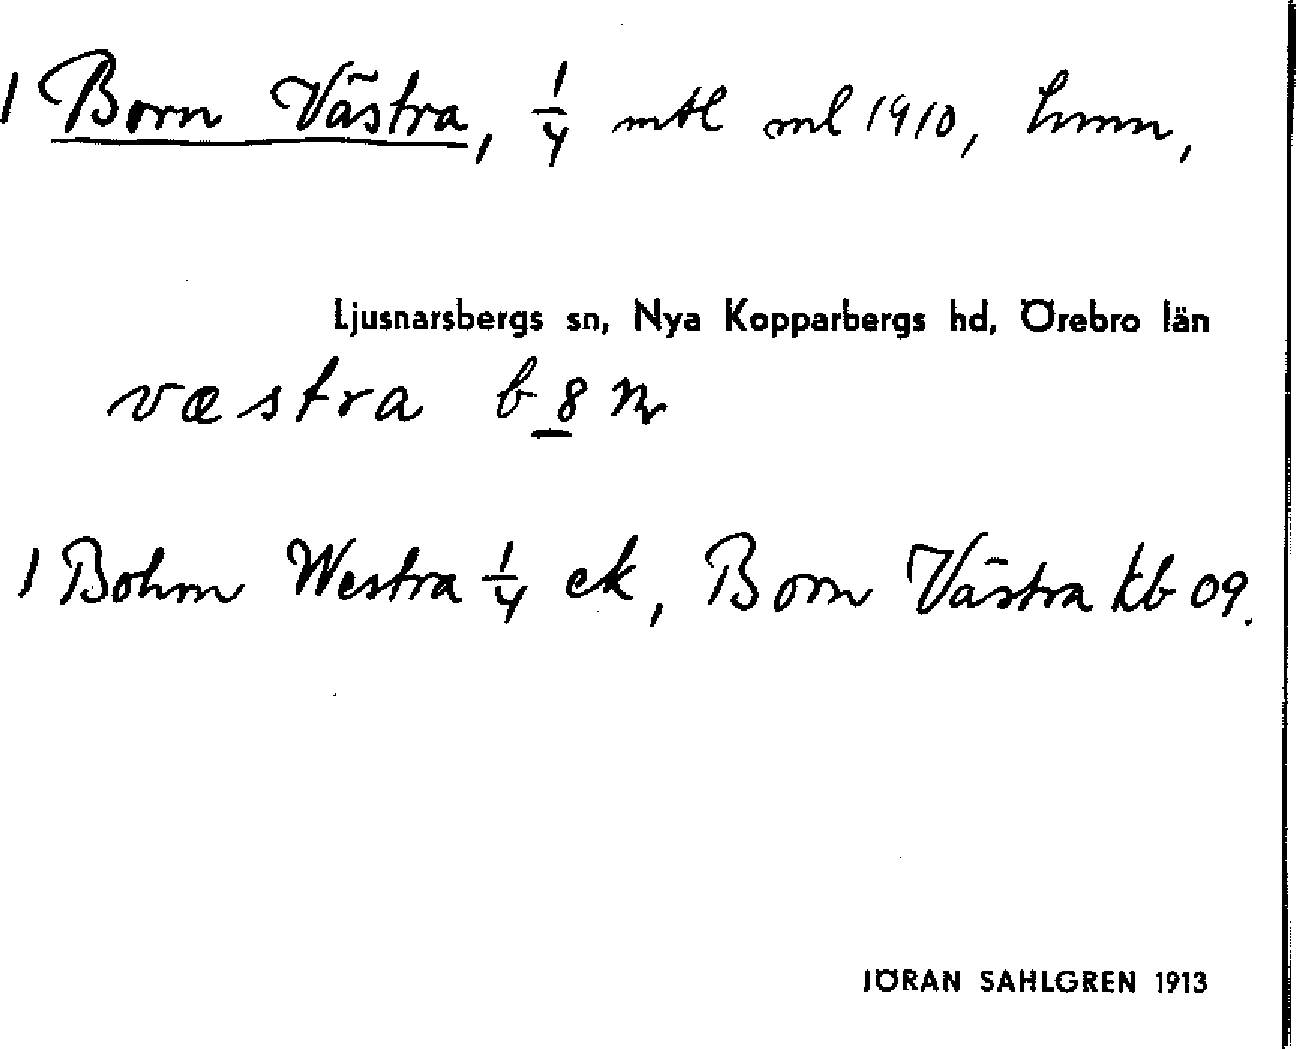 1 Born Västra, 1/4 mtl ml 1910, hmn,
Ljusnarsbergs sn, Nya Kopparbergs hd, Örebro län
væstra b
1 Bohm Westra 1/4 ek, Born Västra kb 09.
JÖRAN SAHLGREN 1913